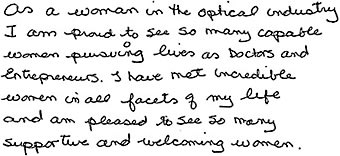 As a woman in the optical industry
I am proud to see so many capable
women pursuing lives as Doctors and
Entrepreneurs. I have met incredible
women in all facets of my life
and am pleased to see so many
supportive and welcoming women.